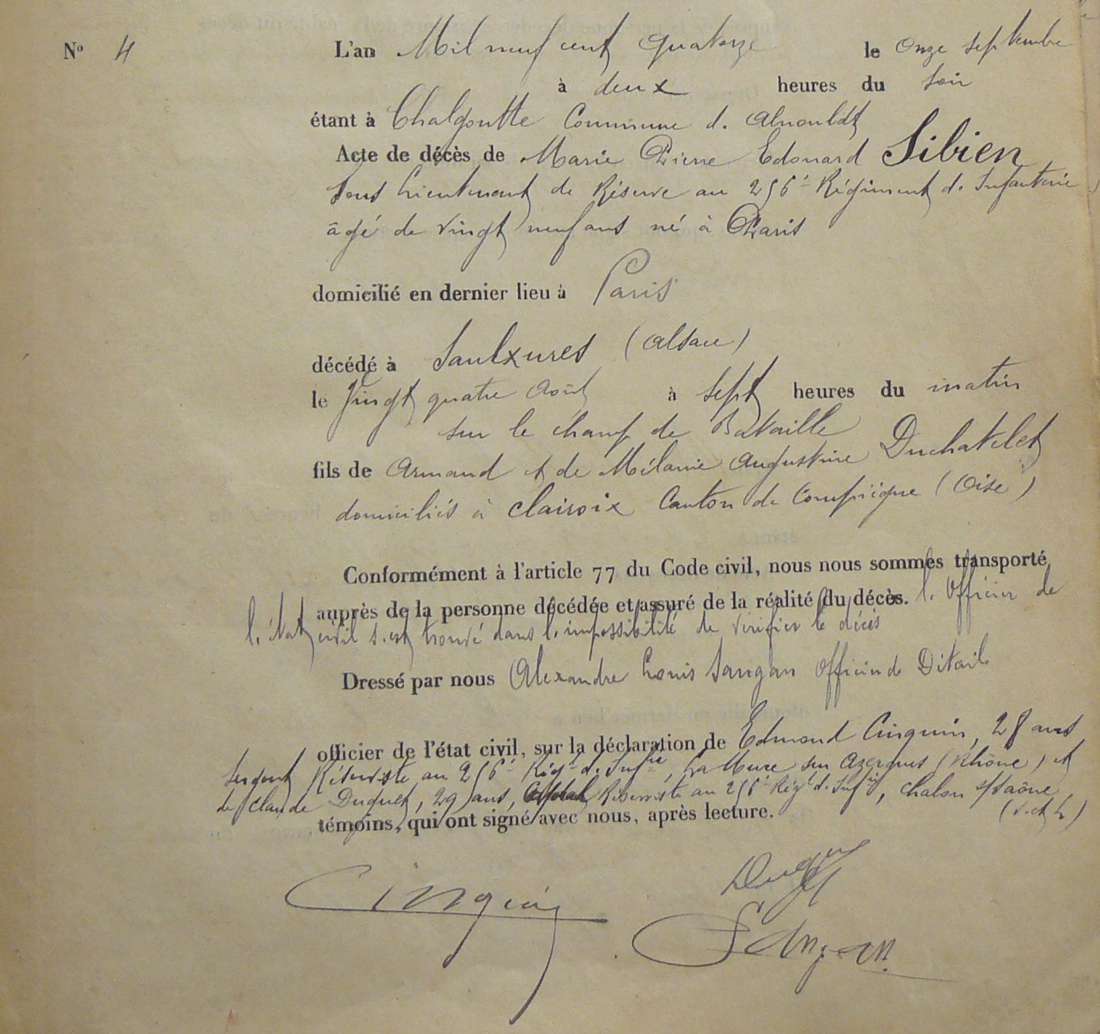 N° 4 L'an Mil neuf cent quatorze le onze septembre
à deux heures du soir
étant à Chalgoutte Commune d'Arnould
Acte de décès de Marie Pierre Edouard Sibien
Sous Lieutenant de Réserve au 256e Régiment d'Infanterie
âgé de vingt neuf ans né à Paris
domicilié en dernier lieu à Paris
décédé à Saulxures (Alsace)
le Vingt quatre Août à sept heures du matin
sur le champ de Bataille
fils de Armand et de Mélanie Augustine Duchatelet
domiciliés à Clairoix Canton de Compiègne (Oise)
Conformément à l'article 77 du Code civil, nous nous sommes transporté
auprès de la personne décédée et assuré de la réalité du décès. l'Officier de
l'état civil s'est trouvé dans l'impossibilité de vérifier le décès
Dressé par nous Alexandre Louis Sangan Officier de Détails
officier de l'état civil, sur la déclaration de Edmond Cinquin, 28 ans
Sergent Réserviste au 256e Régt d'Infie, La Mure sur Azergues (Rhône) et
de Claude Duguet, 29 ans, Réserviste au 256e Régt d'Infie, Chalon s/Saône
témoins, qui ont signé avec nous, après lecture. (S. et L)
Cinquin Duguet
Sangan